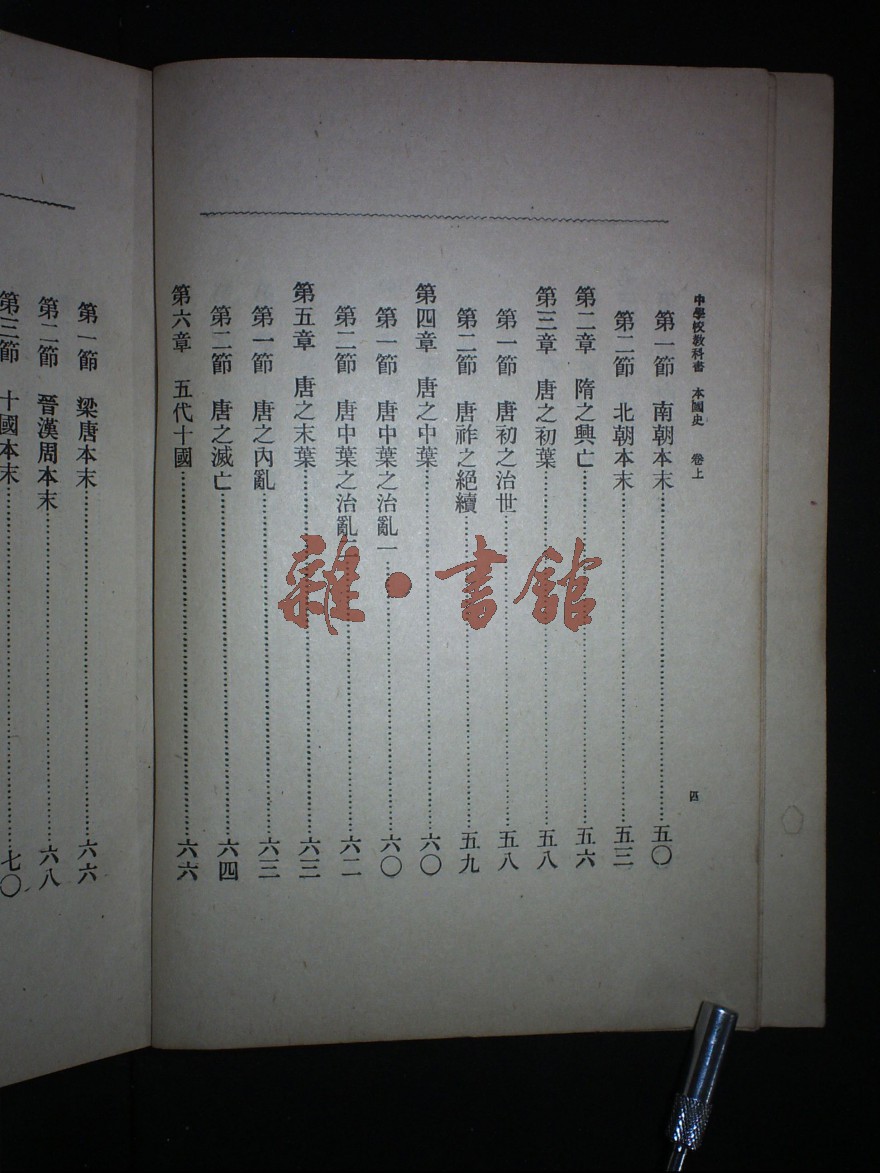 中學校教科書 本國史 卷上
四
第一節 南朝本末 五〇
第二節 北朝本末 五三
第二章 隋之興亡 五六
第三章 唐之初葉 五八
第一節 唐初之治世 五八
第二節 唐祚之絕續 五九
第四章 唐之中葉 六〇
第一節 唐中葉之治亂一 六〇
第二節 唐中葉之治亂二 六二
第五章 唐之末葉 六三
第一節 唐之內亂 六三
第二節 唐之滅亡 六四
第六章 五代十國 六六
第一節 梁唐本末 六六
第二節 晉漢周本末 六八
第三節 十國本末 七〇
雜·書館